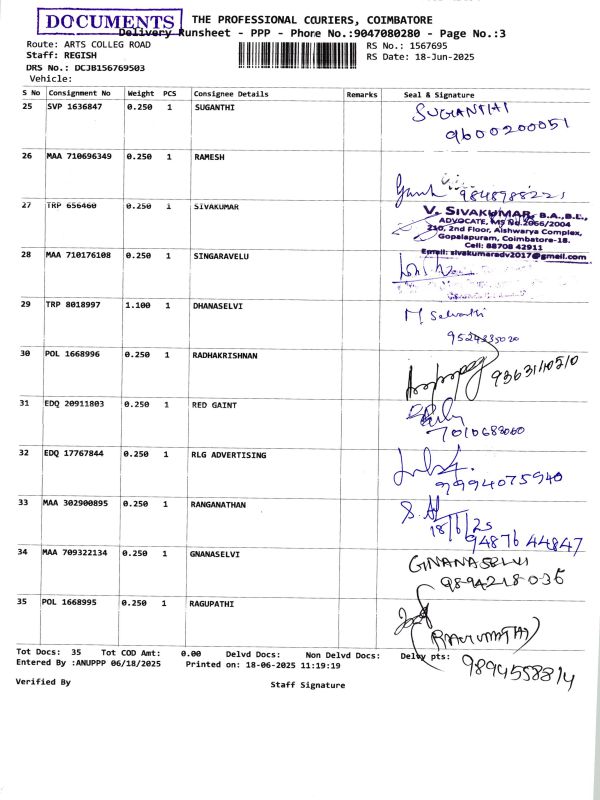 DOCUMENTS
THE PROFESSIONAL COURIERS, COIMBATORE
Delivery Runsheet - PPP - Phone No.:9047080280 - Page No.:3
Route: ARTS COLLEG ROAD
RS No.: 1567695
Staff: REGISH
RS Date: 18-Jun-2025
DRS No.: DCJB156769503
Vehicle:
S No Consignment No Weight PCS Consignee Details Remarks Seal & Signature
25 SVP 1636847 0.250 1 SUGANTHI SUGANTHI
9600200051
26 MAA 710696349 0.250 1 RAMESH
9848988221
27 TRP 656460 0.250 1 SIVAKUMAR
V. SIVAKUMAR, B.A.,B.L.,
ADVOCATE, MS No.2066/2004
210, 2nd Floor, Aishwarya Complex,
Gopalapuram, Coimbatore-18.
Cell: 88708 42911
Email: sivakumaradv2017@gmail.com
28 MAA 710176108 0.250 1 SINGARAVELU
29 TRP 8018997 1.100 1 DHANASELVI
M Selvathi
30 POL 1668996 0.250 1 RADHAKRISHNAN
31 EDQ 20911803 0.250 1 RED GAINT
32 EDQ 17767844 0.250 1 RLG ADVERTISING
9994075940
33 MAA 302900895 0.250 1 RANGANATHAN
18/6/25
94876 44847
34 MAA 709322134 0.250 1 GNANASELVI GNANASELVI
9894218036
35 POL 1668995 0.250 1 RAGUPATHI
9894558814
Tot Docs: 35 Tot COD Amt: 0.00 Delvd Docs: Non Delvd Docs: Delvy pts:
Entered By :ANUPPP 06/18/2025 Printed on: 18-06-2025 11:19:19
Verified By Staff Signature